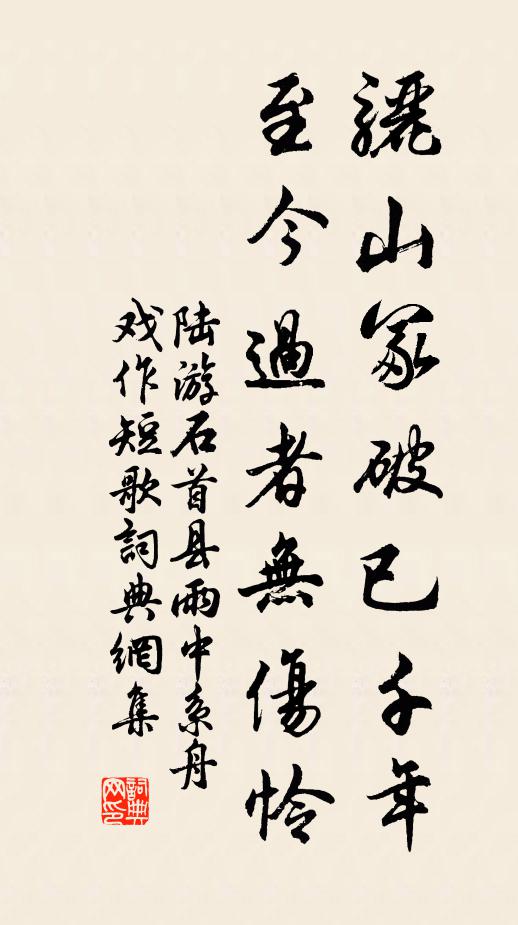 骊山冢破已千年
至今過者無傷怜
陆游石首县雨中系舟
戏作短歌詞典網集
詞典网印